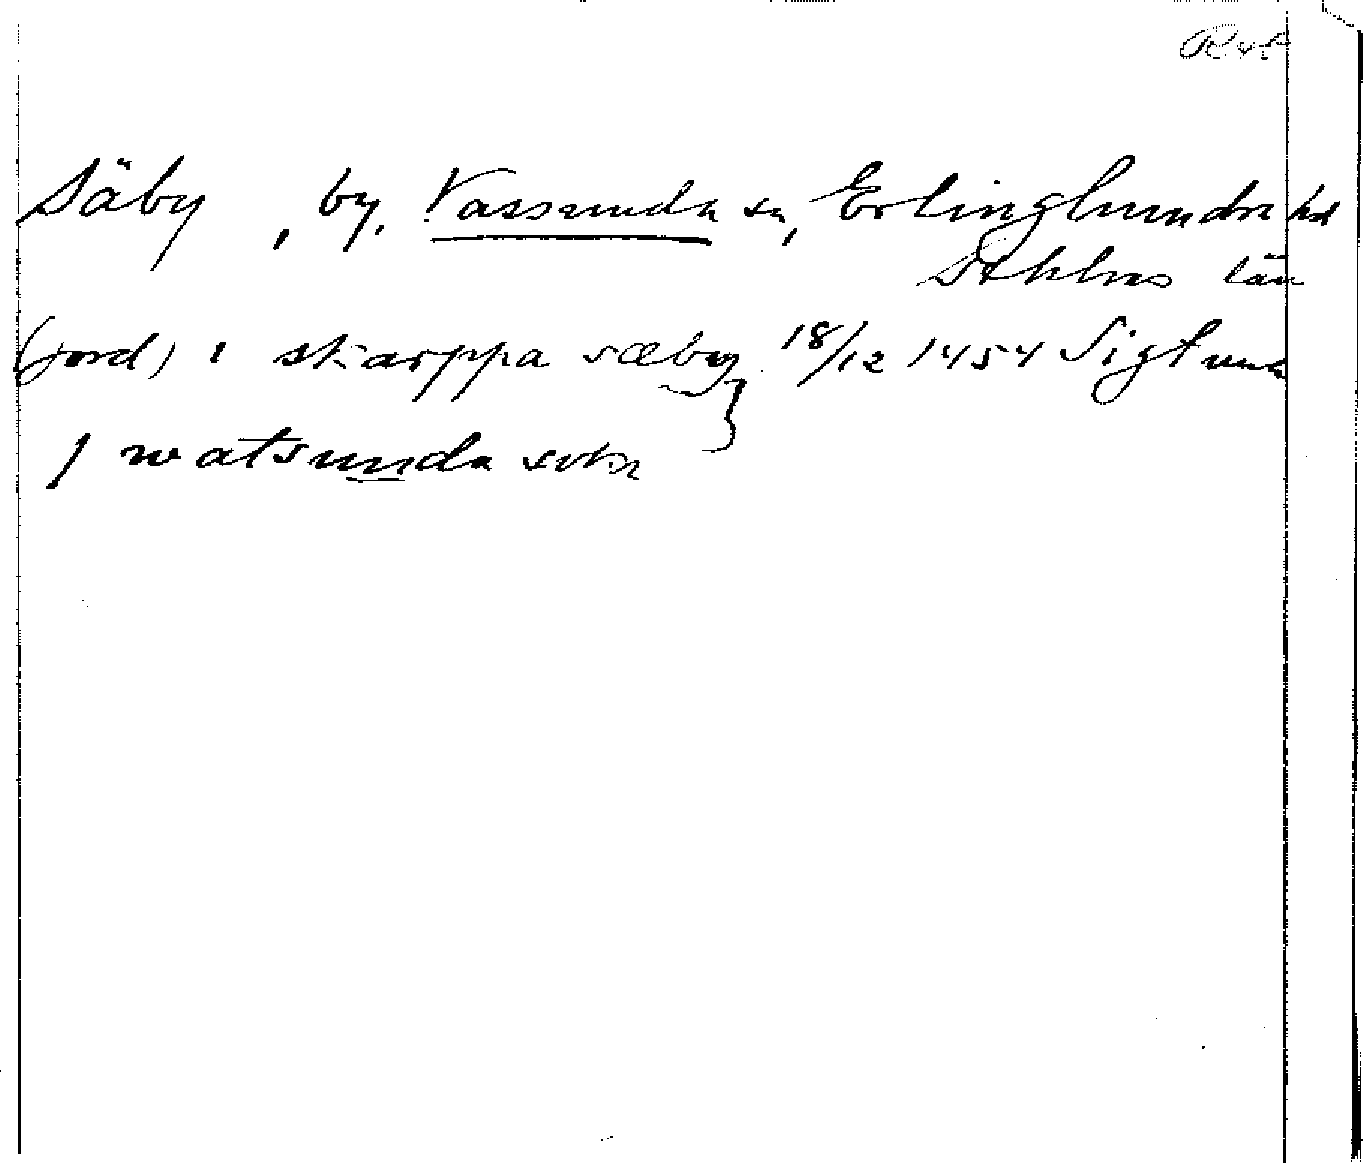 Säby, by, Vassunda sn, Erlinghundra hd
Sthlms län
(jord) i skarppa sæby } 18/12 1454 Sigtuna
J watsunda sokn